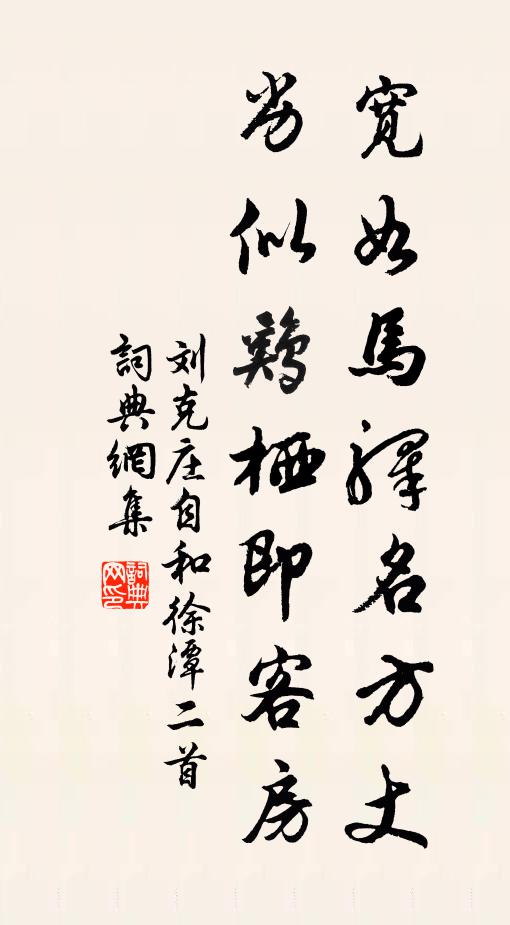 寬如馬驛名方丈
劣似鷄栖即客房
刘克庄自和徐潭二首
詞典網集
詞典网印